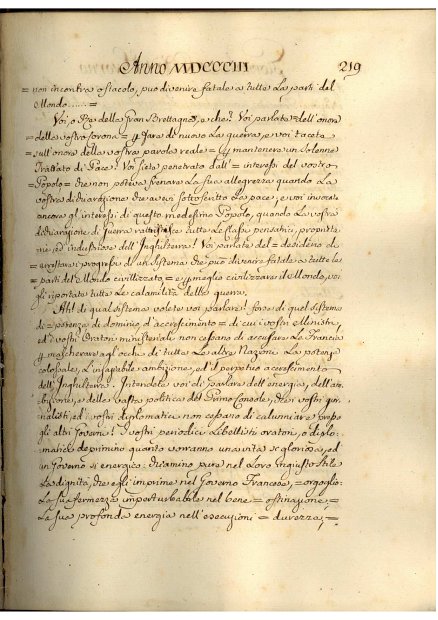 Anno MDCCCIII 219
= non incontra ostacolo, può divenire fatale a tutte le parti del
Mondo......=
Voi o Re della Gran Brettagna, e che! Voi parlate dell'onore
= della vostra Corona = per fare di nuovo la guerra, e voi tacete
= sull'onore della vostra parola reale = per mantenere un solenne
Trattato di Pace! Voi siete penetrato dall'= interesse del vostro
Popolo = che non poteva frenare la sua allegrezza quando la
vostra dichiarazione che avea sottoscritto la pace, e voi invocate
ancora gl'interessi di questo medesimo Popolo, quando la vostra
dichiarazione di guerra rattristisce tutte le classi pensanti, proprieta
rie, ed industriose dell'Inghilterra! Voi parlate del = desiderio di
= arrestare i progressi di un sistema che può divenire fatale a tutte le
= parti del Mondo civilizzato = e per meglio civilizzare il Mondo, voi
gli riportate tutte le calamità della guerra.
Ah! di qual sistema volete voi parlare! forse di quel sistema
di = potenza di dominio, d'accrescimento = di cui i vostri Ministri,
ed i vostri Oratori ministeriali non cessano di accusare la Francia
per mascherare agl'occhi di tutte le altre Nazioni la potenza
colossale, l'insaziabile ambizione, ed il perpetuo accrescimento
dell'Inghilterra? Intendete voi di parlare dell'energia, dell'am
bizione, e della vasta politica del Primo Console, che i vostri gior
nalisti, ed i vostri diplomatici non cessano di calunniare presso
gli altri Governi! I vostri periodici Libellisti oratori, o diplo:
matici deprimino quanto vorranno una vita sì gloriosa, ed
un Governo sì energico: chiamino pure nel loro ingiusto stile
la dignità, che egli imprime nel Governo Francese, = orgoglio:
la sua fermezza imperturbabile nel bene = ostinazione, =
la sua profonda energia nell'esecuzioni = durezza; =